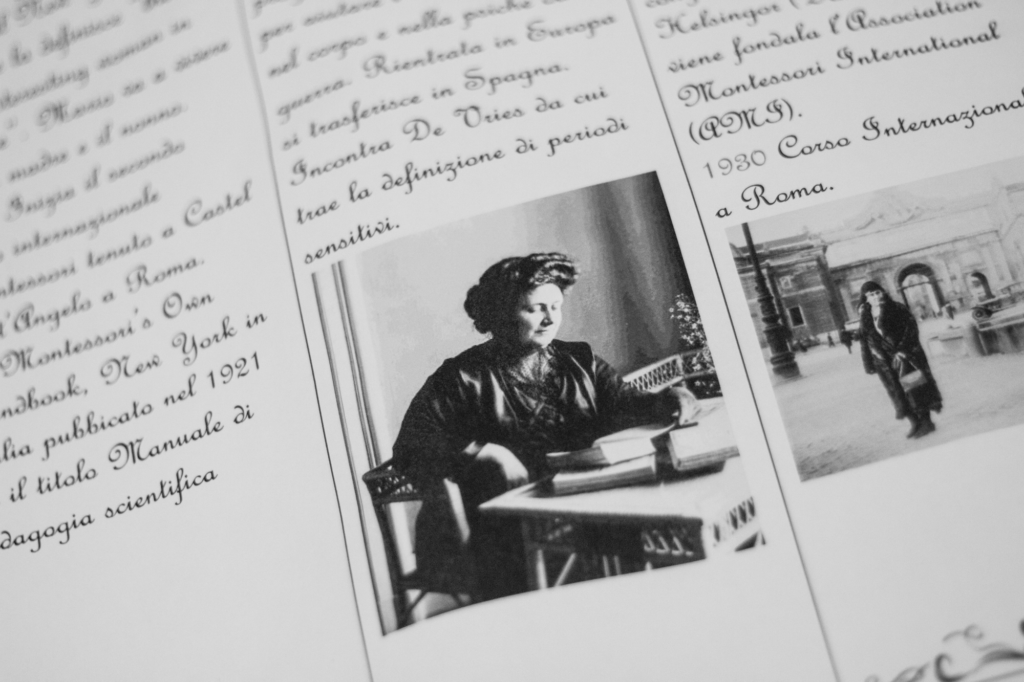 la definizione
Mario se a vivere
muda e il nonno.
Inizia il secondo
internazionale
tenuto a Castel
t'Angelo a Roma.
Montessori's Own
ndbook, New York in
lia pubblicato nel 1921
il titolo Manuale di
dagogia scientifica
per
nel corpo e nella psiche
guerra. Rientrata in Europa
si trasferisce in Spagna.
Incontra De Vries da cui
trae la definizione di periodi
sensitivi.
Helsingor
viene fondata l'Association
Montessori International
(AMI).
1930 Corso Internazional
a Roma.